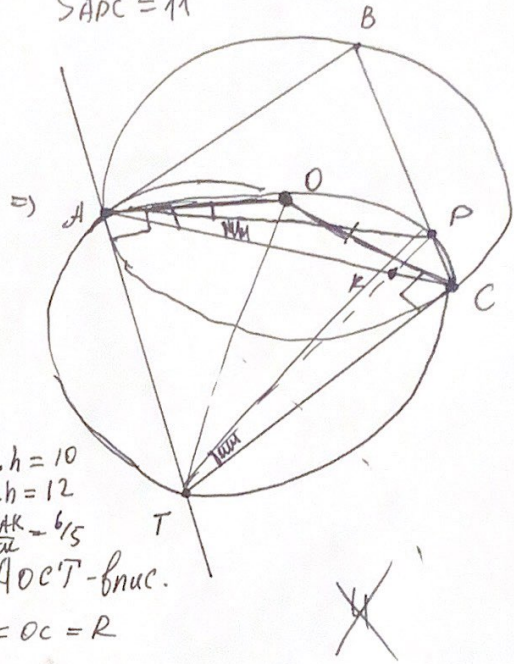 S ADC = 11
B
O
=)
A
P
K
C
.h = 10
.h = 12
AK = 6/5
T
AOCT-впис.
= OC = R